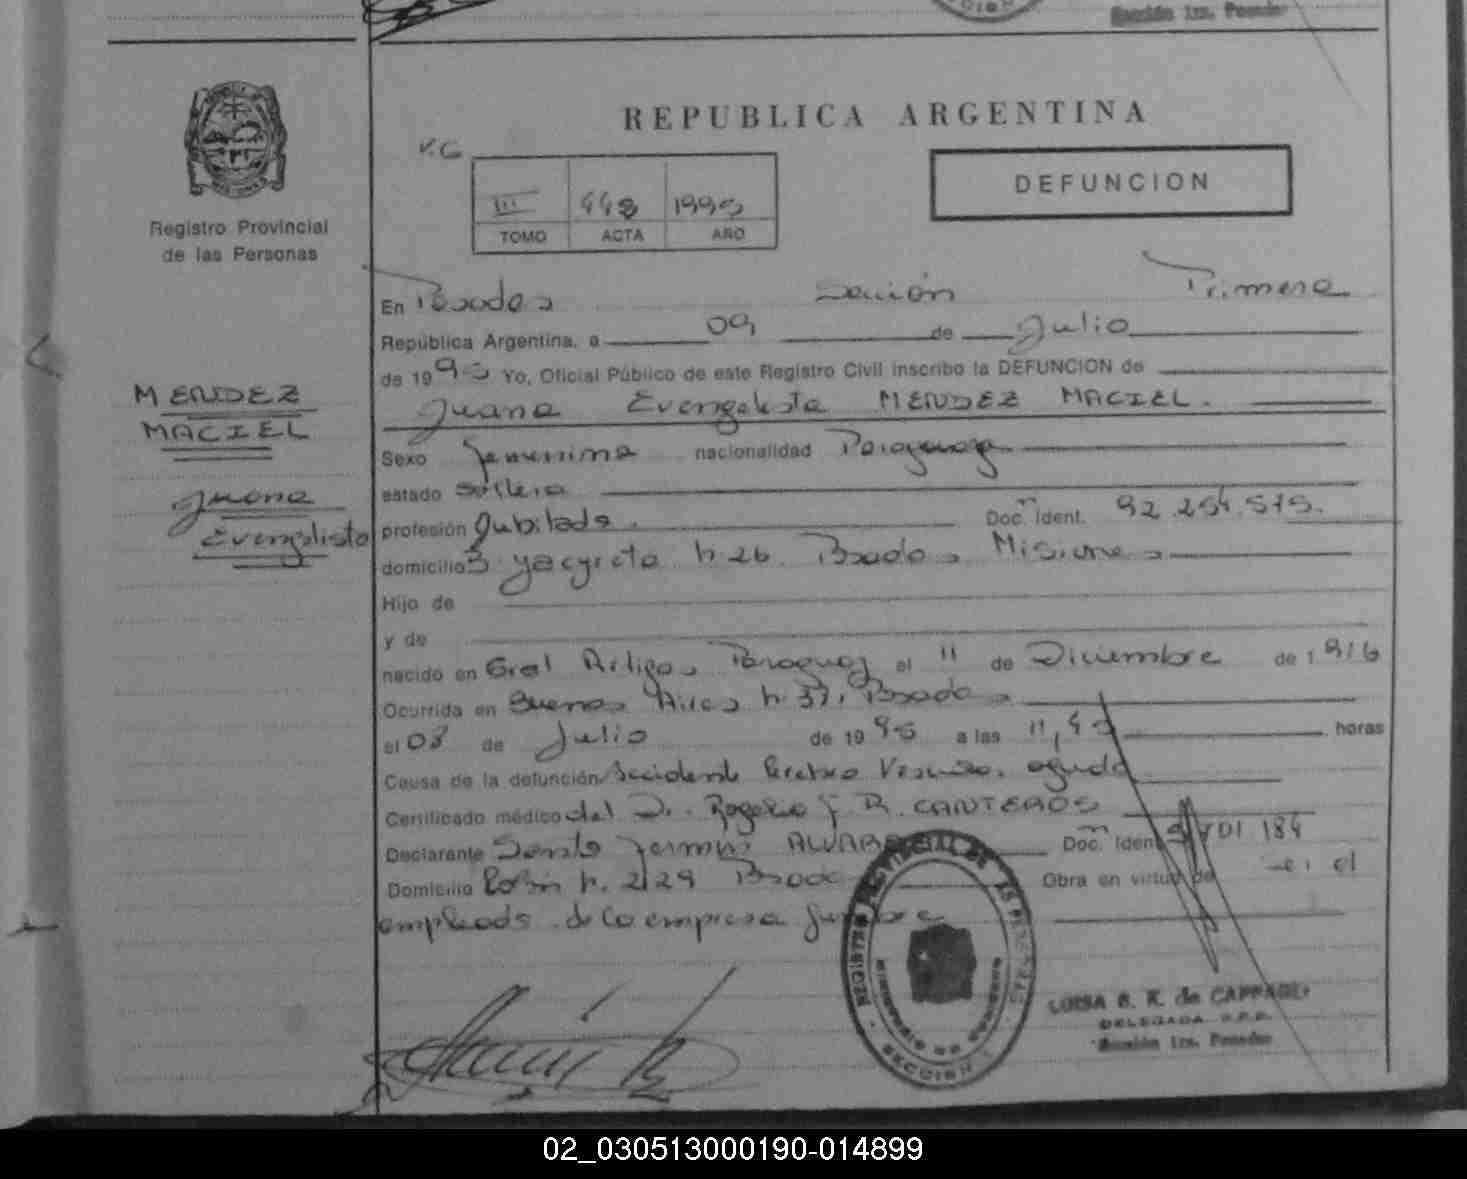 Sección 1ra. Posadas
REPUBLICA ARGENTINA
DEFUNCION
III 448 1995
TOMO ACTA AÑO
Registro Provincial
de las Personas
MENDEZ
MACIEL
Juana
Evangelista
En Posadas Sección Primera
República Argentina, a 09 de Julio
de 1995 Yo, Oficial Público de este Registro Civil inscribo la DEFUNCION de
Juana Evangelista MENDEZ MACIEL.
Sexo femenino nacionalidad Paraguaya
estado soltera
profesión Jubilada. Doc. Ident. 92.254.575.
domicilio Yacyreta h 26 Posadas Misiones
Hijo de
y de
nacido en Gral Artigas Paraguay el 11 de Diciembre de 1916
Ocurrida en Buenos Aires h. 37, Posadas
el 08 de Julio de 1995 a las 11,45 horas
Causa de la defunción Accidente Cerebro Vascular agudo
Certificado médico del Dr. Rogelio J R. CANTEROS
Declarante Fermin ALVAREZ Doc. Ident. 184
Domicilio h. 2129 Posadas Obra en virtud de ser el
empleado de la empresa funebre
REGISTRO PROVINCIAL DE LAS PERSONAS
MINISTERIO DE GOBIERNO
SECCION
LUISA B. K. de CAPPAGLI
DELEGADA R.P.P.
Sección 1ra. Posadas
02_030513000190-014899